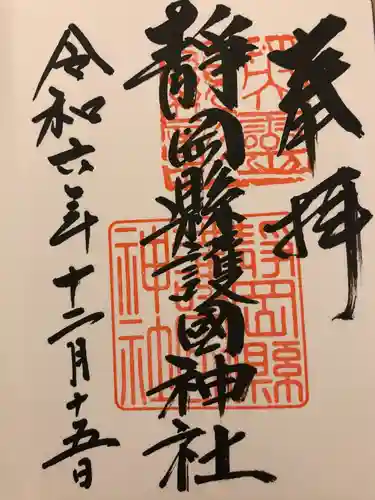 奉拝
静岡縣護國神社
令和六年十二月十五日
静岡縣
護國
神社